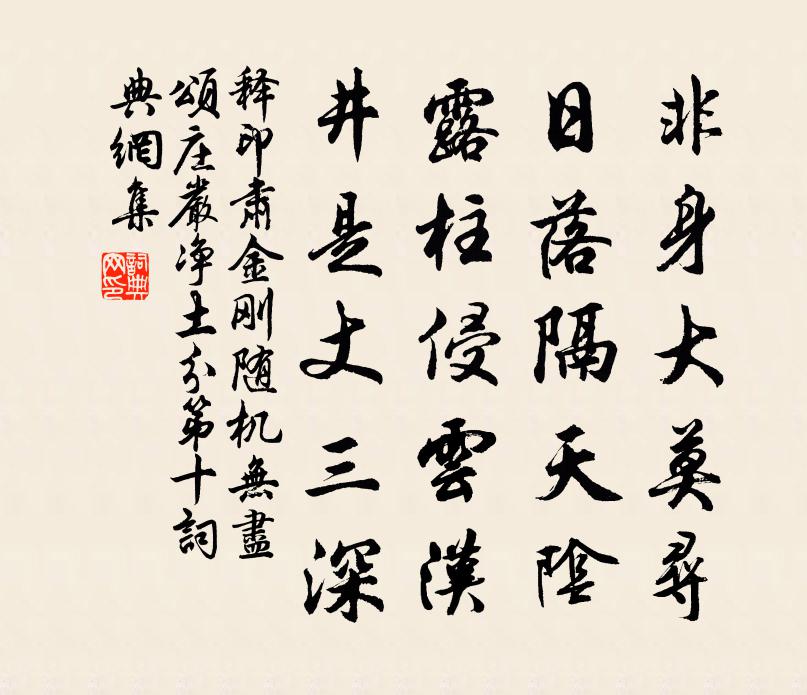 非身大莫尋
日落隔天陰
露柱侵雲漢
井是丈三深
释印肃金刚随机無盡
頌庄嚴净土分第十詞
典網集
詞典网印